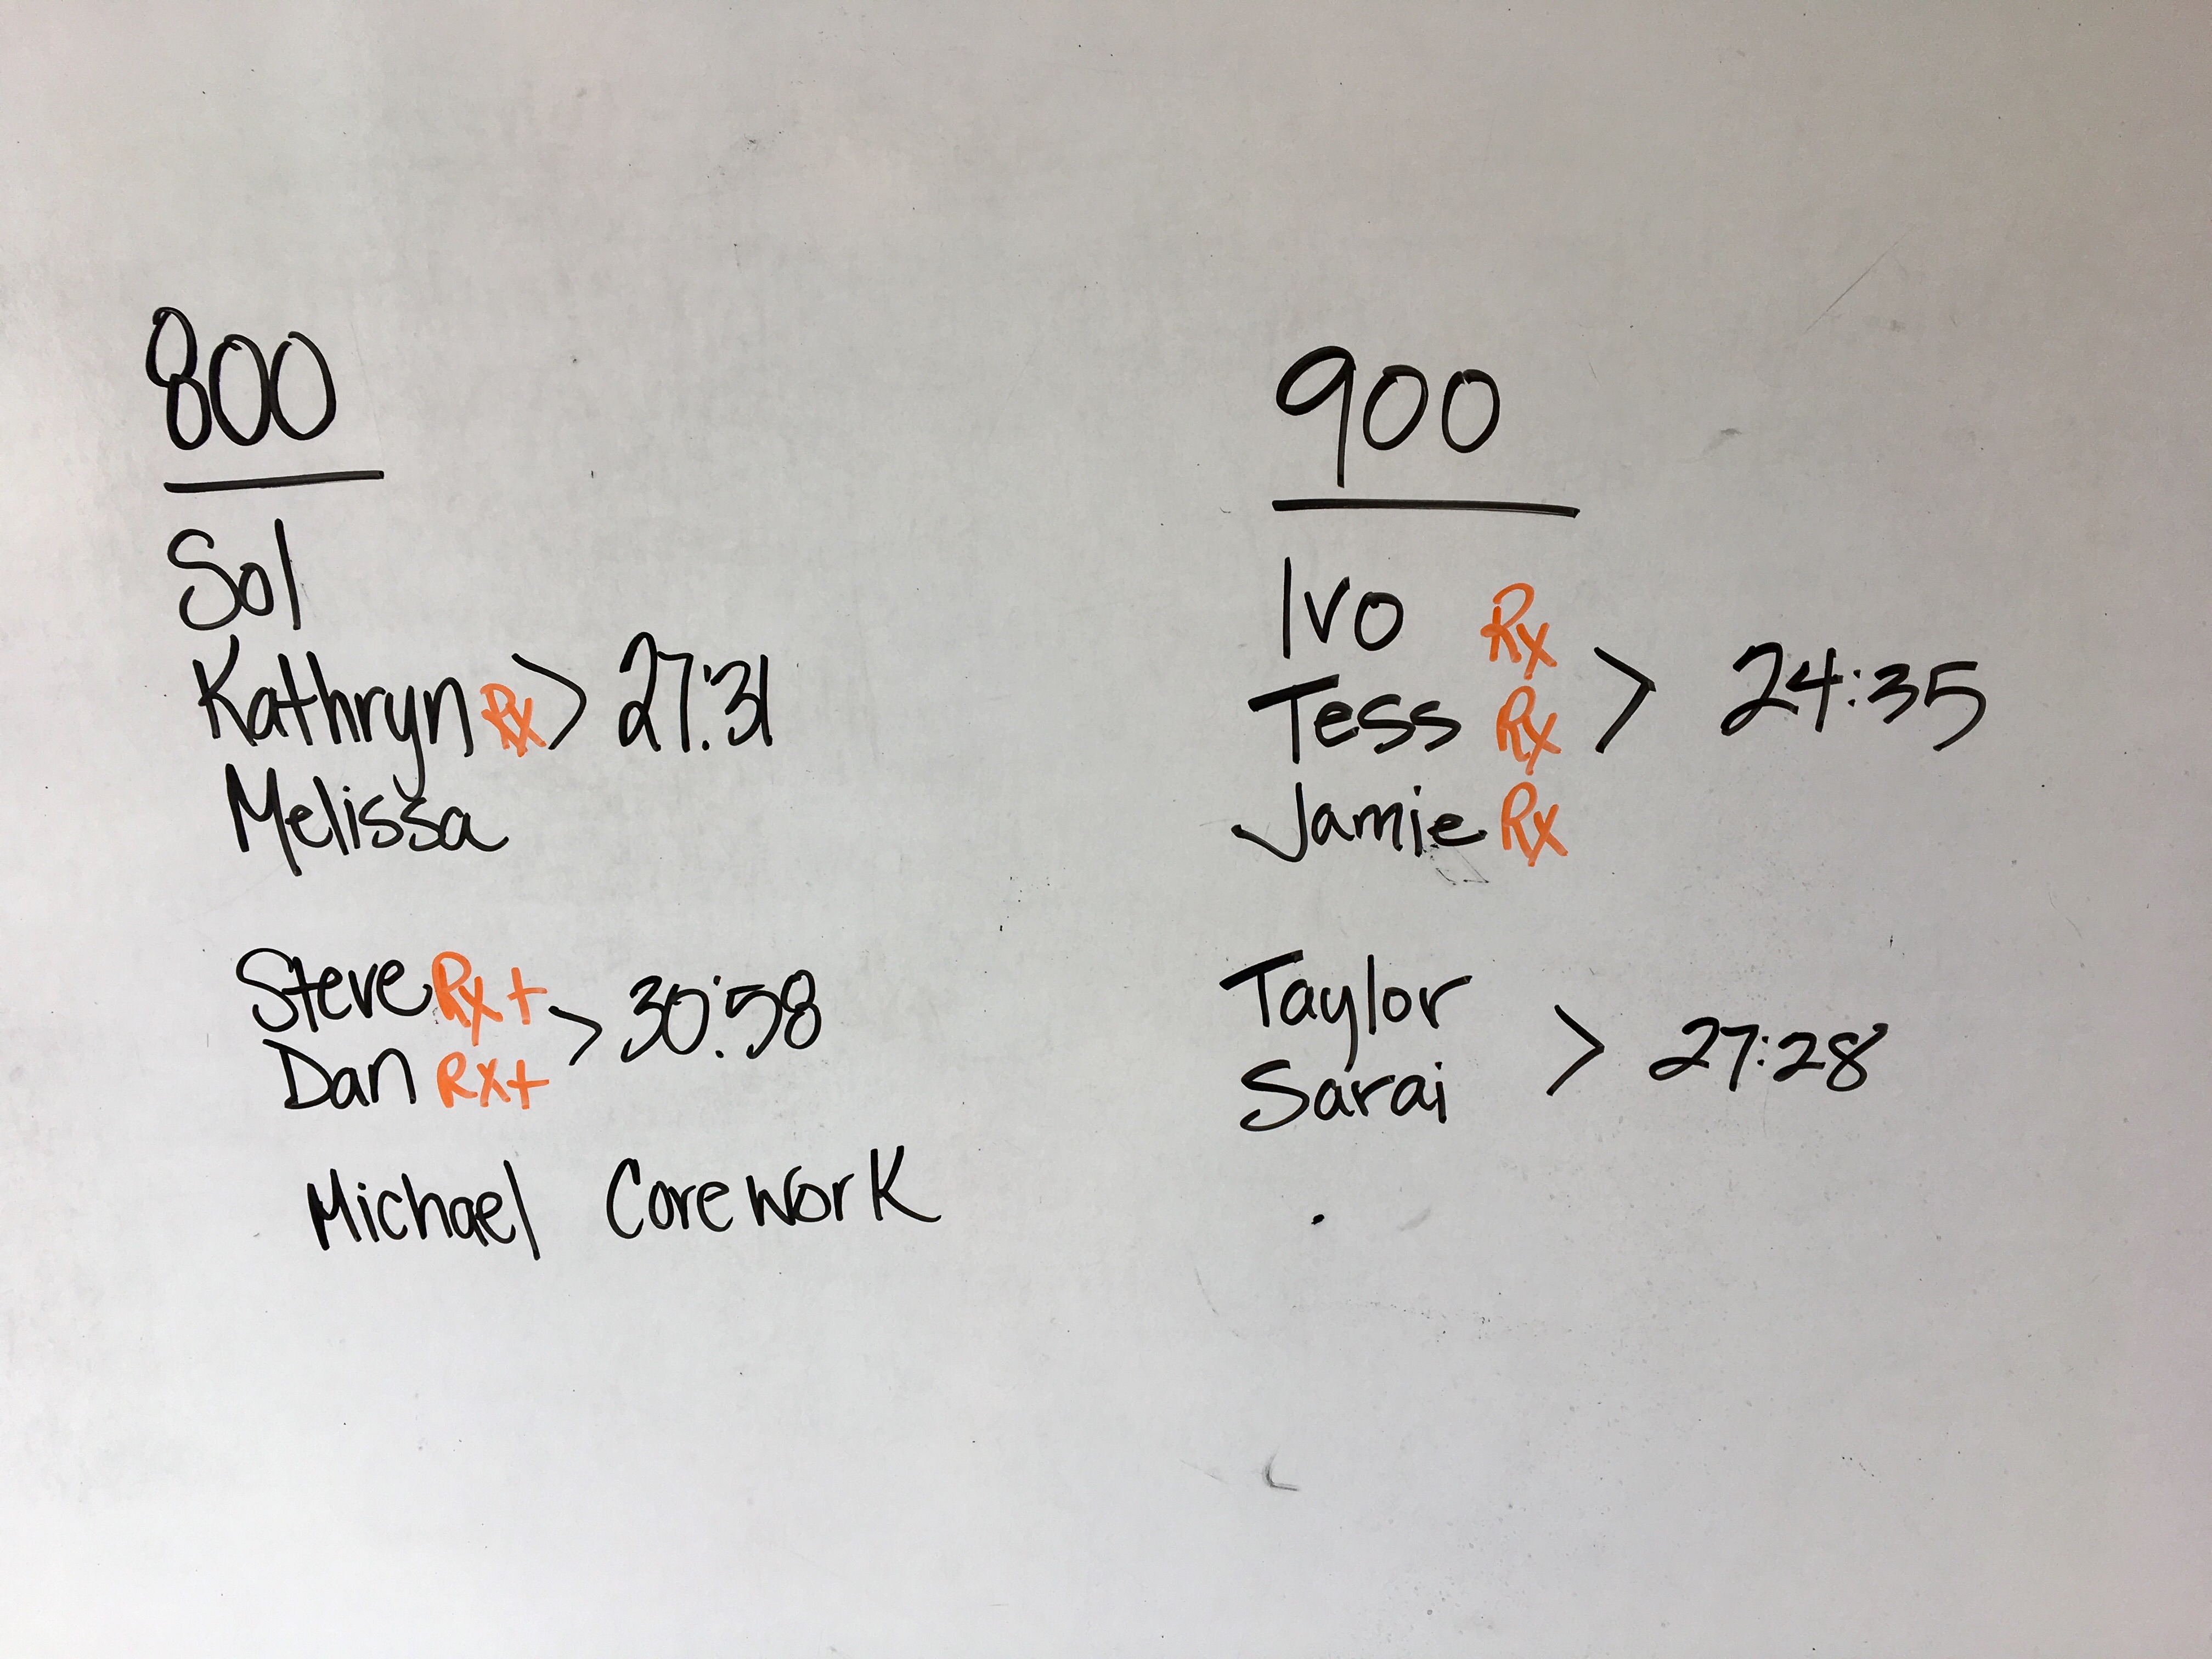 800
Sol
Kathryn Rx > 27:31
Melissa
Steve Rx+
Dan Rx+ > 30:58
Michael Corework
900
Ivo Rx
Tess Rx > 24:35
Jamie Rx
Taylor
Sarai > 27:28